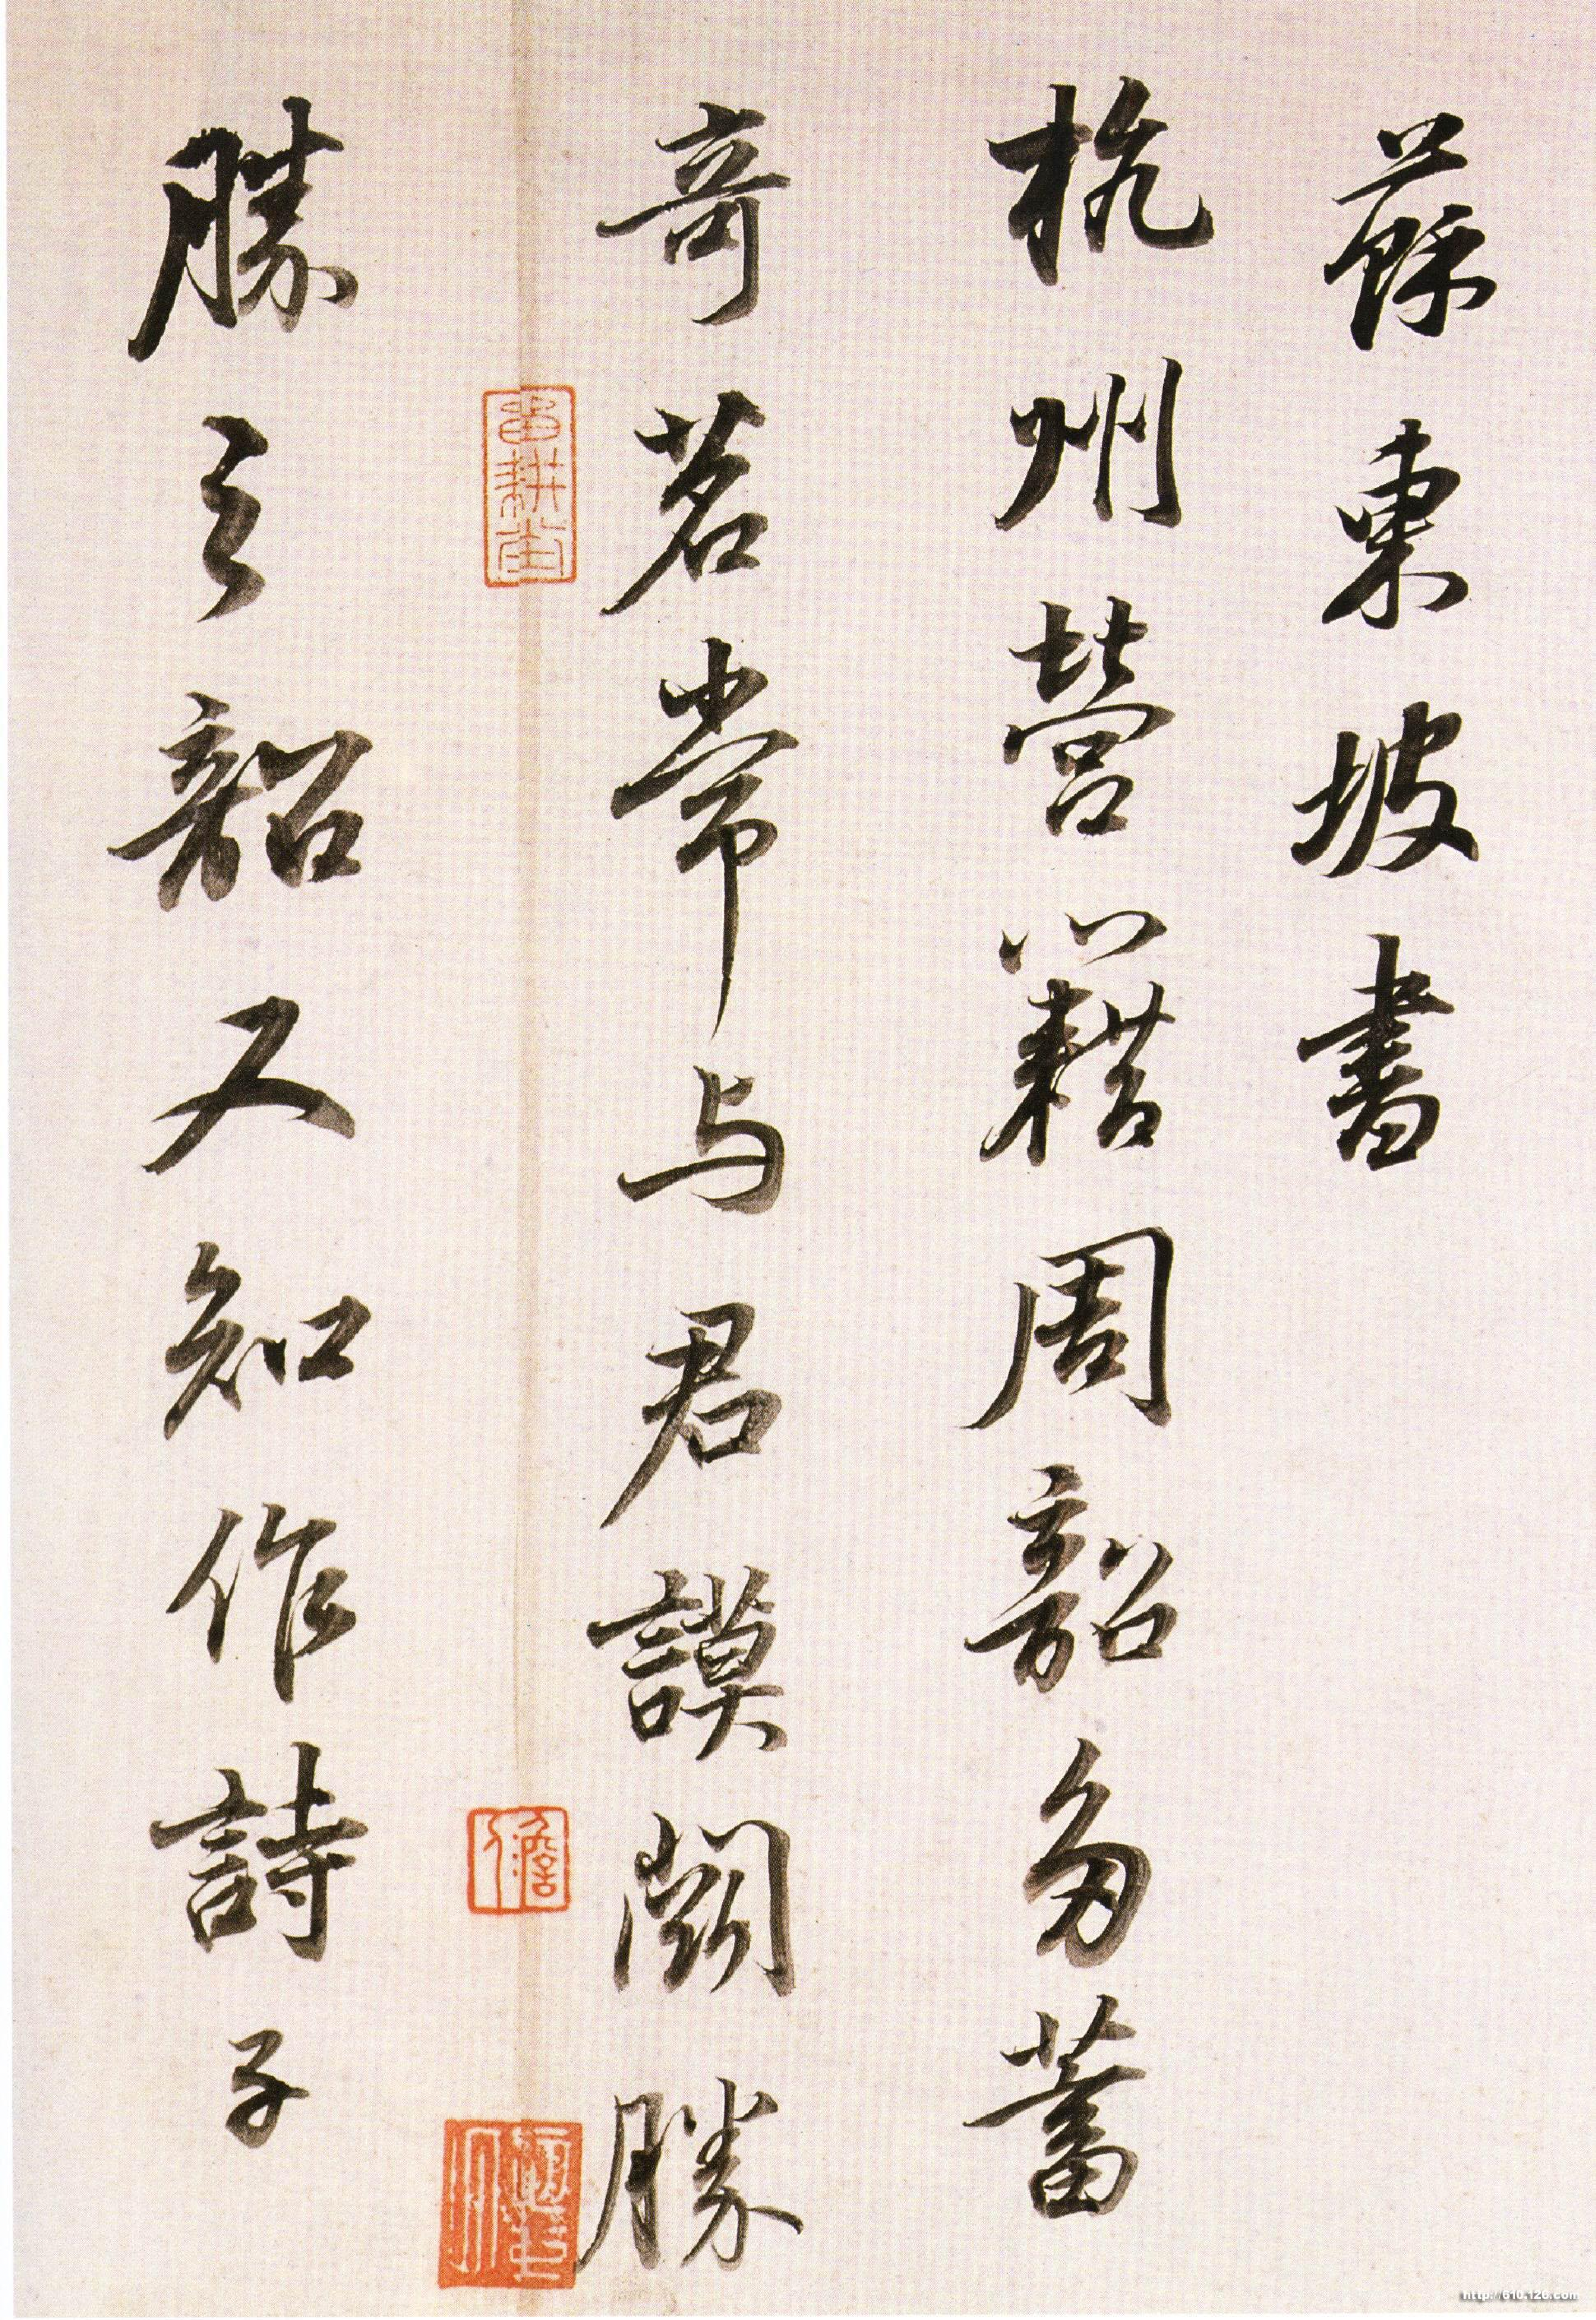 蘇東坡書
杭州營籍周韶多蓄
奇茗常与君謨鬬勝
勝之韶又知作詩子
http://610.126.com